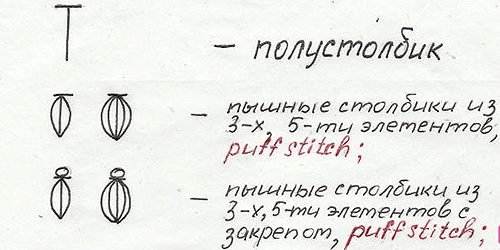 – полустолбик
– пышные столбики из
3-х, 5-ти элементов,
puff stitch;
– пышные столбики из
3-х, 5-ти элементов с
закрепом, puff stitch;